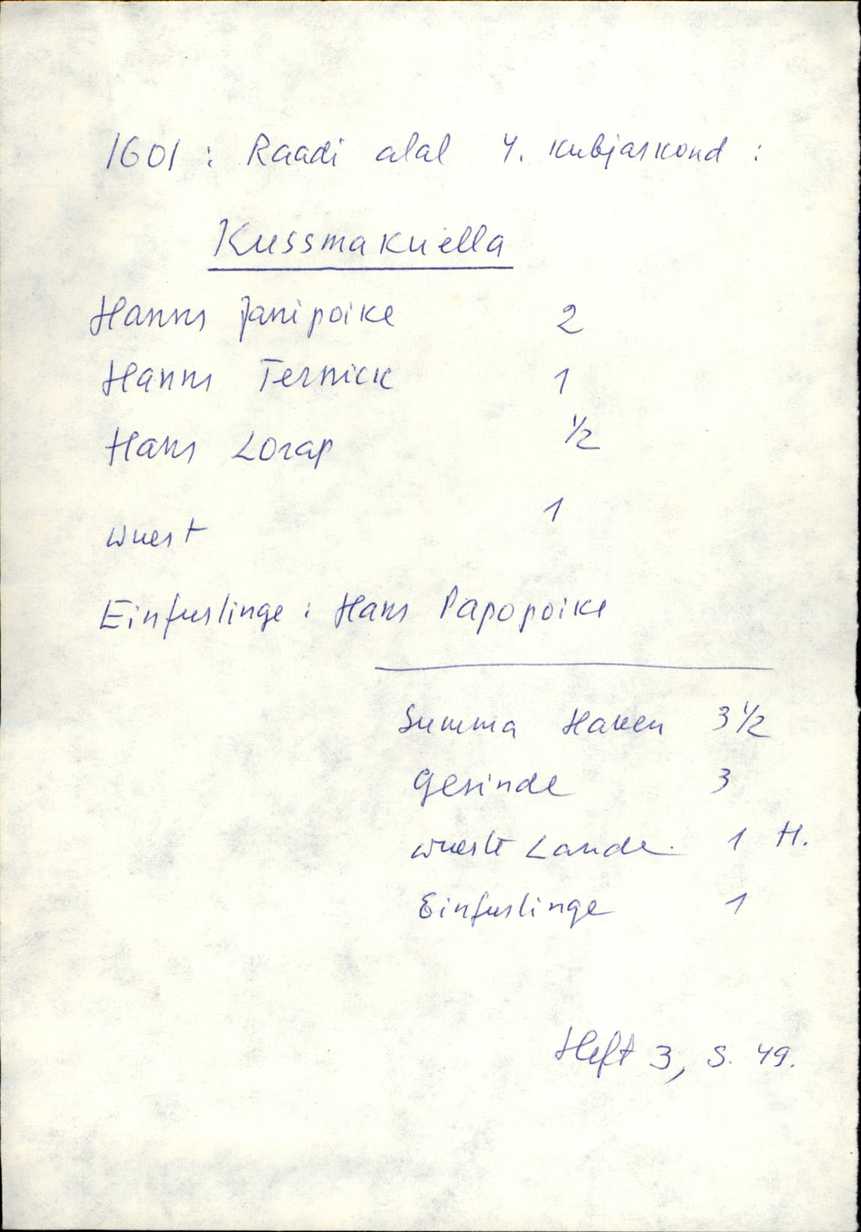 1601 : Raadi alal 4. kubjaskond :
Kussmakuella
Hanns Janipoike 2
Hanns Ternick 1
Hans Lorap 1/2
wuest 1
Einfuslinge : Hans Papopoike
Summa Haken 3 1/2
Gesinde 3
wueste Lande 1 H.
Einfuslinge 1
Heft 3, S. 49.